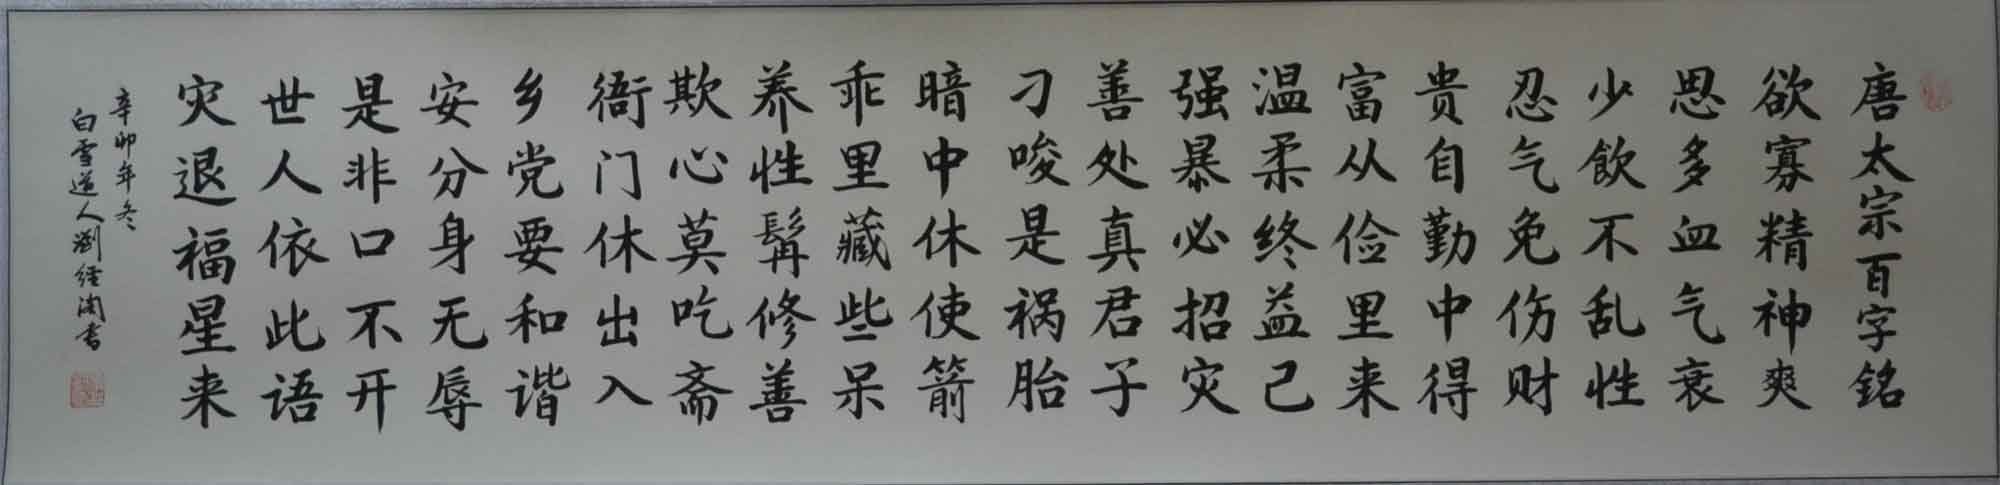 唐太宗百字铭
欲寡精神爽
思多血气衰
少飲不乱性
忍气免伤财
贵自勤中得
富从俭里来
温柔终益己
强暴必招灾
善处真君子
刁唆是祸胎
暗中休使箭
乖里藏些呆
养性髯修善
欺心莫吃斋
衙门休出入
乡党要和谐
安分身无辱
是非口不开
世人依此语
灾退福星来
辛卯年冬
白雲道人劉经闲书